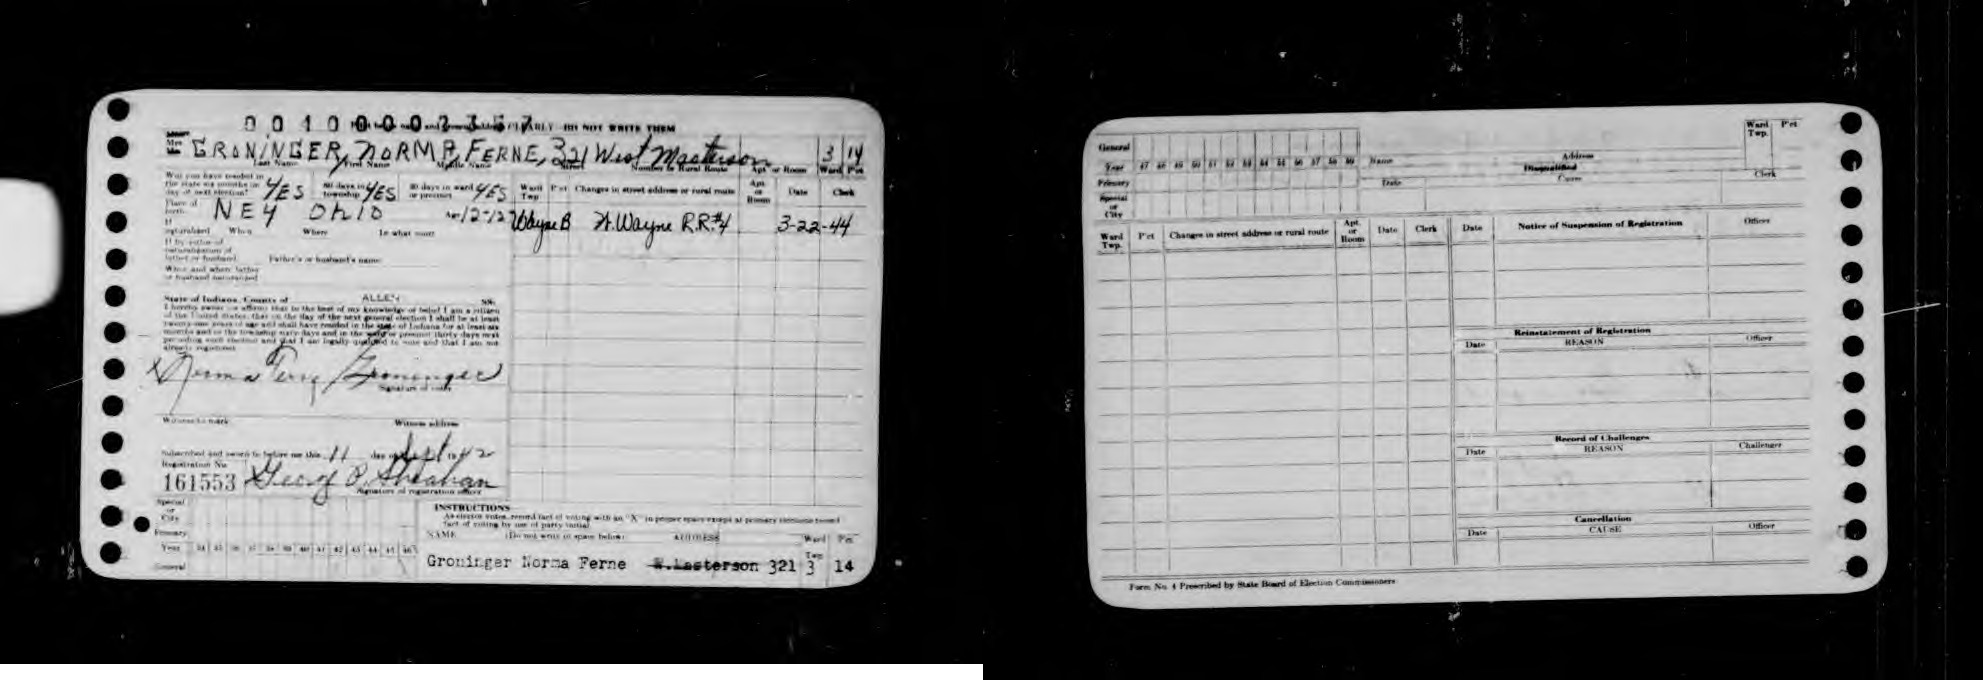 0 0 1 0 0 0 0 3 3 5 7
CLEARLY—DO NOT WRITE THEM
Mrs GRONINGER, NORMA, FERNE, 321 West Masterson 3 14
Last Name First Name Middle Name Street Number or Rural Route Apt. or Room Ward Pct
Will you have resided in the state six months on day of next election? YES 60 days in township YES 30 days in ward or precinct YES
Ward Twp Pct Changes in street address or rural route Apt. or Room Date Clerk
Place of birth NEY OHIO Age
Wayne B Ft. Wayne R.R.#4 3-22-44
If naturalized When Where In what court
If by virtue of naturalization of father or husband Father's or husband's name
When and where father or husband naturalized
State of Indiana, County of ALLEN SS:
I hereby swear or affirm that to the best of my knowledge or belief I am a citizen
of the United States; that on the day of the next general election I shall be at least
twenty-one years of age and shall have resided in the state of Indiana for at least six
months and in the township sixty days and in the ward or precinct thirty days next
preceding such election and that I am legally qualified to vote and that I am not
already registered
Norma Ferne Groninger
Signature of voter
Witness to mark Witness address
Subscribed and sworn to before me this 11 day of Sept 1942
Registration No.
161553 George P. Sheahan
Signature of registration officer
Special or City
Primary
Year 34 35 36 37 38 39 40 41 42 43 44 45 46
General
INSTRUCTIONS
As elector votes, record fact of voting with an "X" in proper space except at primary elections record
fact of voting by use of party initial
NAME (Do not write in space below) ADDRESS Ward Twp Pct
Groninger Norma Ferne W.Masterson 321 3 14
General
Year 47 48 49 50 51 52 53 54 55 56 57 58 59
Primary
Special or City
Name Address Ward Twp. P'ct
Disqualified
Date Cause Clerk
Ward Twp. P'ct Changes in street address or rural route Apt. or Room Date Clerk
Date Notice of Suspension of Registration Officer
Reinstatement of Registration
Date REASON Officer
Record of Challenges
Date REASON Challenger
Cancellation
Date CAUSE Officer
Form No. 4 Prescribed by State Board of Election Commissioners